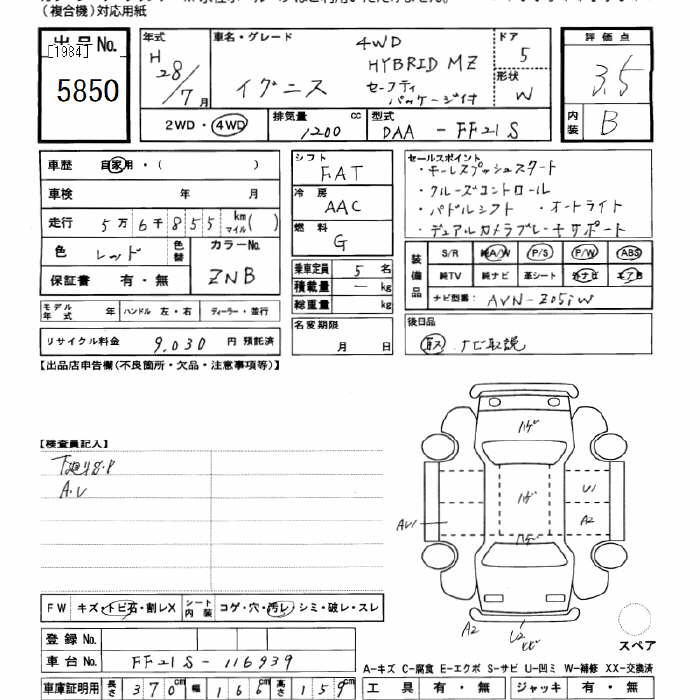 （複合機）対応用紙
出品No.
[1984]
5850
年式 H 28/7月
車名・グレード イグニス 4WD HYBRID MZ セーフティ パッケージ付
ドア 5
形状 W
評価点 3.5
内装 B
2WD・4WD
排気量 1200 cc
型式 DAA-FF21S
車歴 自家用・( )
車検 年 月
走行 5万6千855 km マイル( )
色 レッド 色替 カラーNo. ZNB
保証書 有・無
モデル年式 年 ハンドル 左・右 ディーラー・並行
リサイクル料金 9,030 円 預託済
シフト FAT
冷房 AAC
燃料 G
乗車定員 5 名
積載量 - kg
総重量 kg
名変期限 月 日
セールスポイント
・キーレスプッシュスタート
・クルーズコントロール
・パドルシフト ・オートライト
・デュアルカメラブレーキサポート
装備品 S/R 純A/W P/S P/W ABS
純TV 純ナビ 革シート 外ナビ エアB
ナビ型番: AVN-Z05iW
後日品
取 ナビ取説
【出品店申告欄(不良箇所・欠品・注意事項等)】
【検査員記入】
下廻りS.P
A.U
ハゲ
ハゲ
U1
A2
AU1
ハゲ
A2
U2
ヒビ
FW キズ・トビ石・割レX シート内装 コゲ・穴・汚レ・シミ・破レ・スレ
登録No.
車台No. FF21S-116939
スペア
A-キズ C-腐食 E-エクボ S-サビ U-凹ミ W-補修 XX-交換済
車庫証明用 長さ 370cm 幅 166cm 高さ 159cm
工具 有・無 ジャッキ 有・無